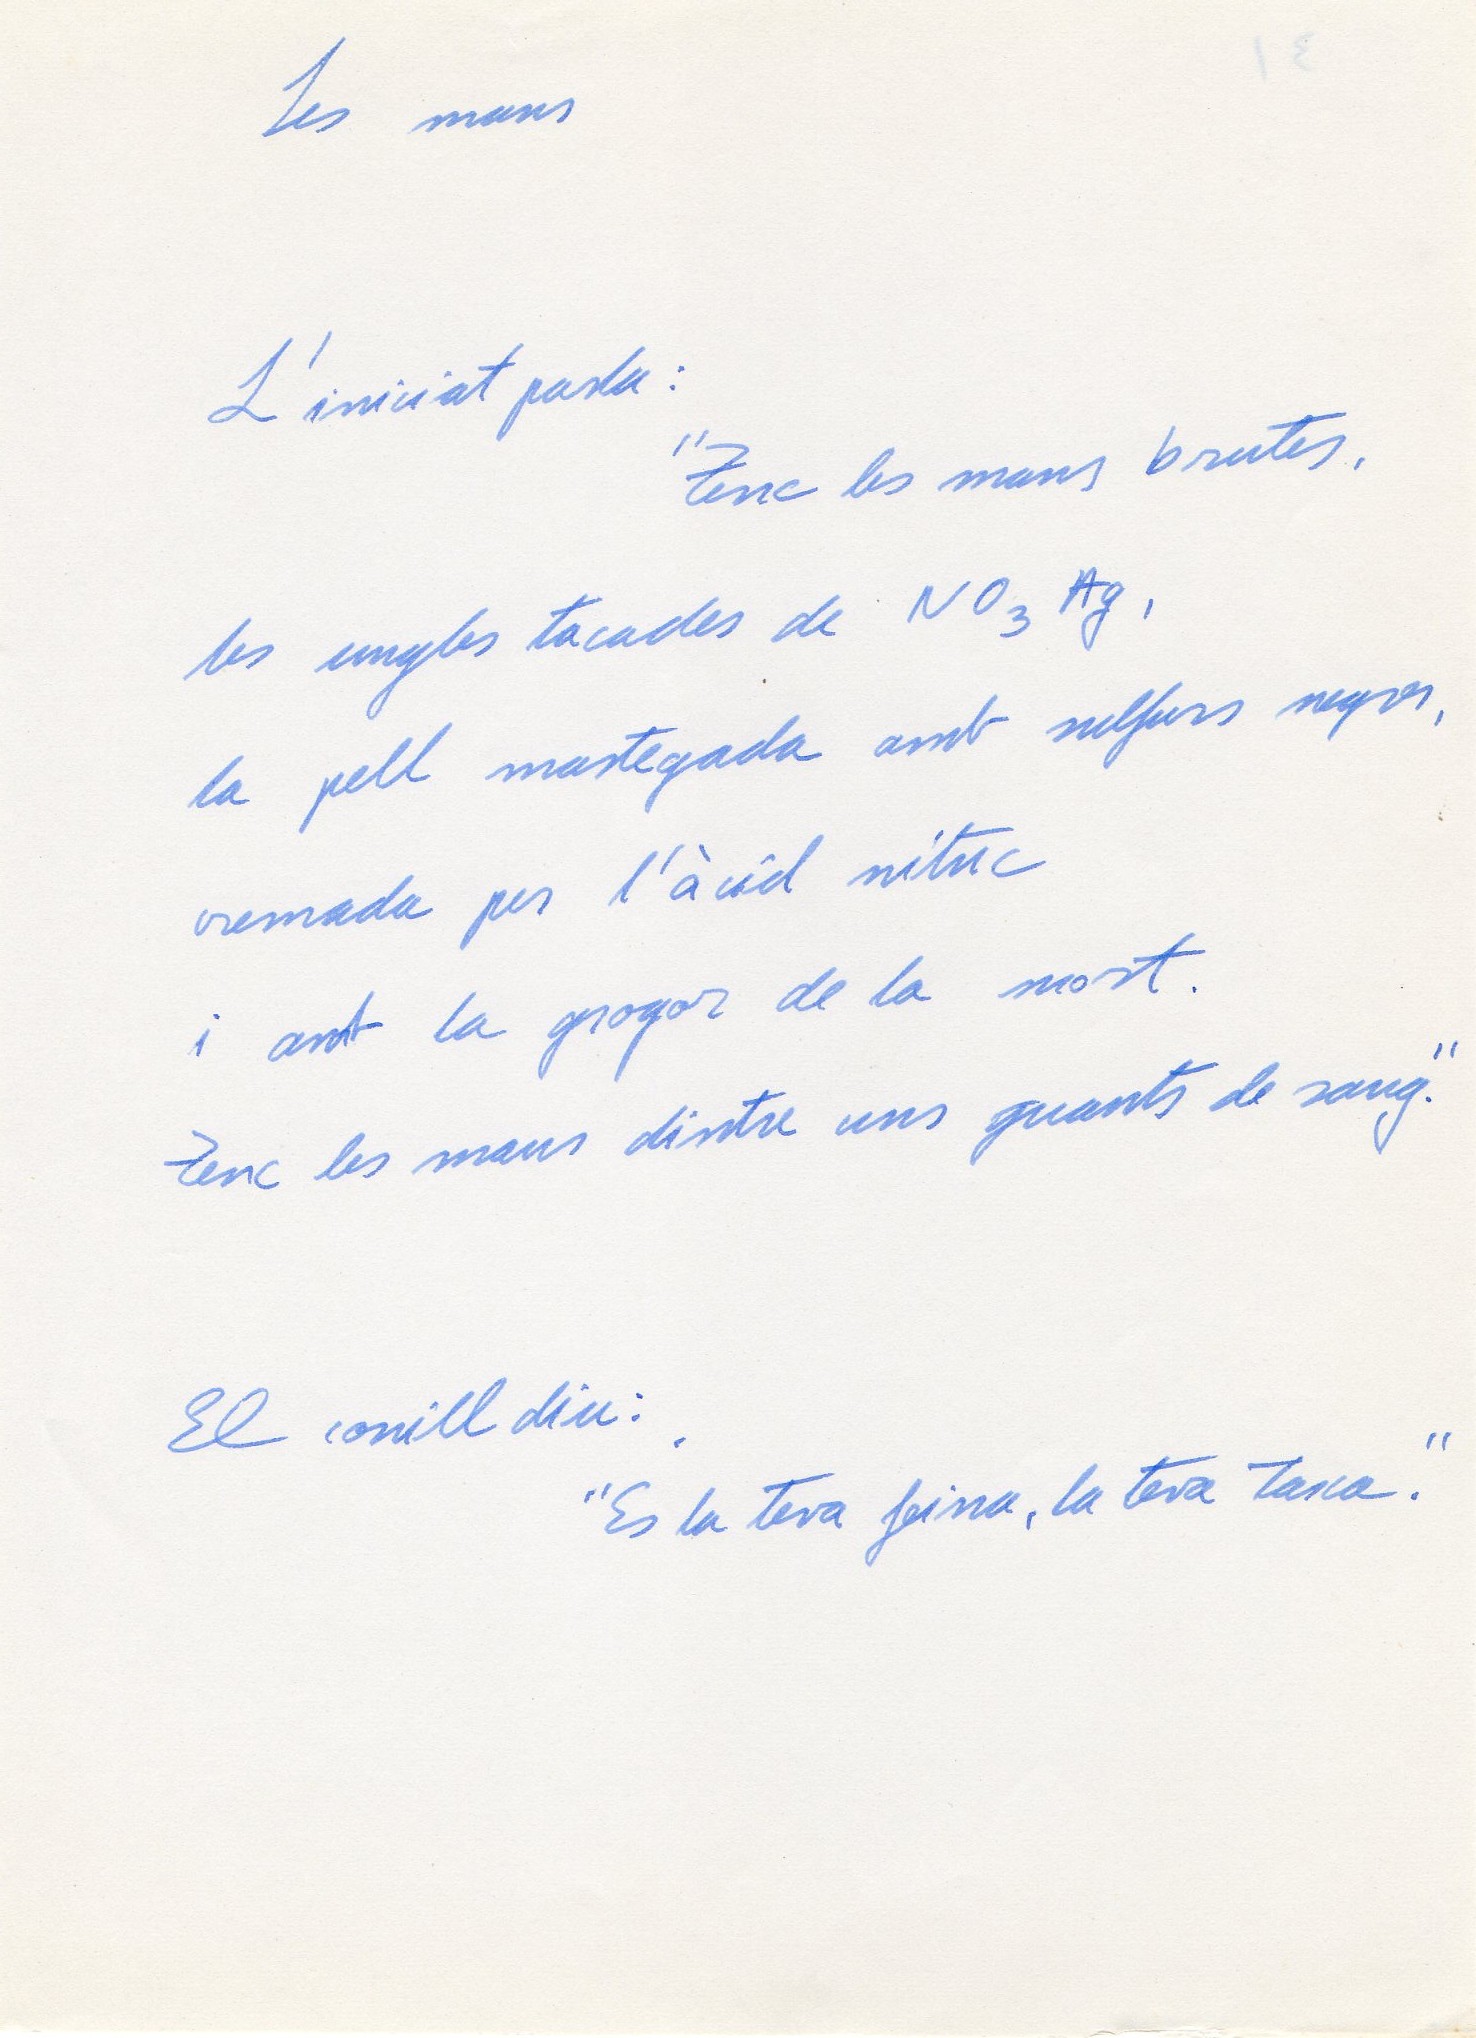 Les mans
L'iniciat parla:
"Tenc les mans brutes,
les ungles tacades de NO₃ Ag,
la pell mastegada amb sulfurs negres,
cremada per l'àcid nítric
i amb la grogor de la mort.
Tenc les mans dintre uns guants de sang."
El conill diu:
"Es la teva feina, la teva tasca."